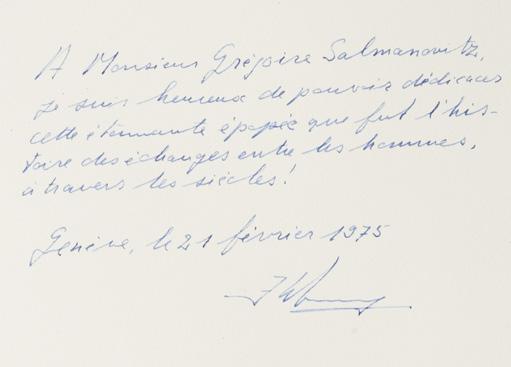 A Monsieur Grégoire Salmanowitz,
je suis heureux de pouvoir dédicacer
cette étonnante épopée que fut l'his-
toire des échanges entre les hommes,
à travers les siècles!
Genève, le 21 février 1975